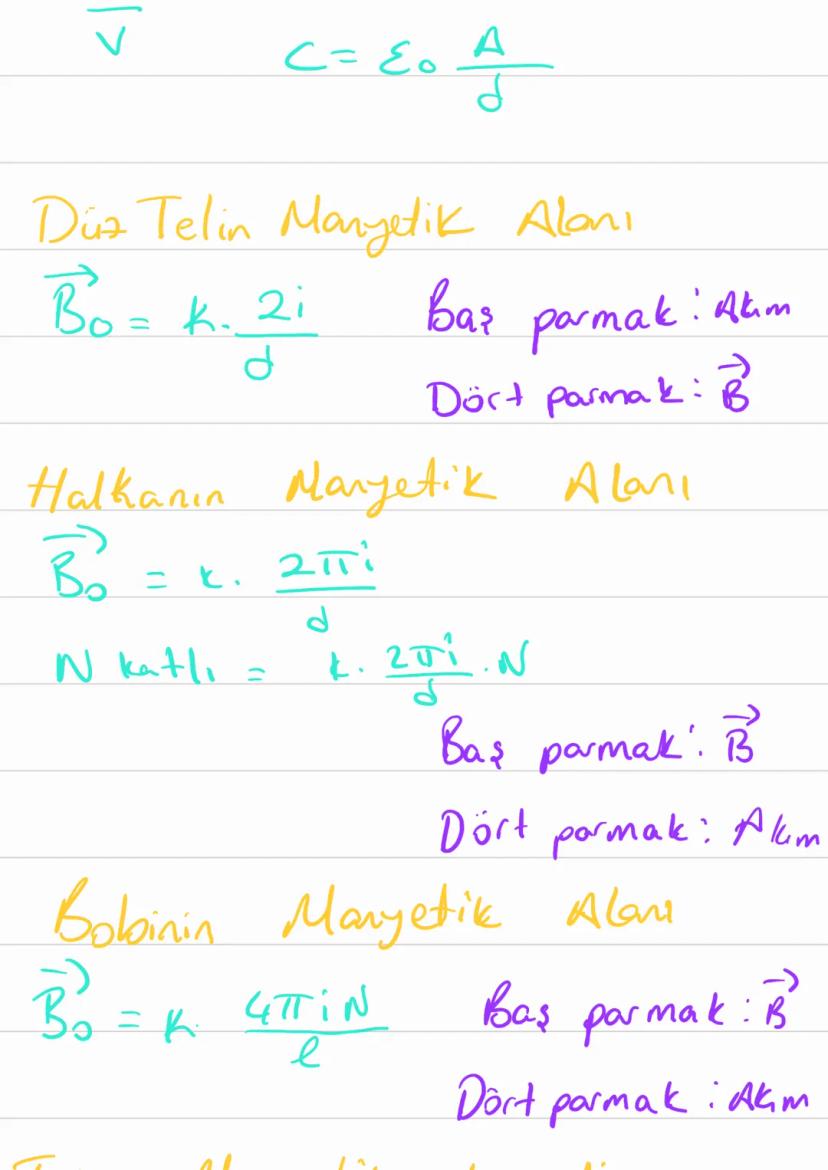 V
C = ε₀ A/d
Düz Telin Manyetik Alanı
B⃗₀ = k. 2i/d
Baş parmak: Akım
Dört parmak: B⃗
Halkanın Manyetik Alanı
B⃗₀ = k. 2πi/d
N katlı = k. 2πi/d . N
Baş parmak: B⃗
Dört parmak: Akım
Bobinin Manyetik Alanı
B⃗₀ = k. 4πiN/l
Baş parmak: B⃗
Dört parmak: Akım